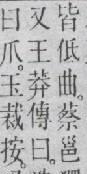 皆低曲。蔡邕
又王莽傳曰。
曰爪。玉裁按。